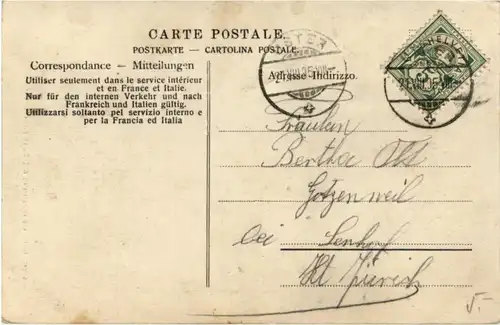 CARTE POSTALE.
POSTKARTE — CARTOLINA POSTALE
Correspondance — Mitteilungen
Adresse-Indirizzo.
Utiliser seulement dans le service intérieur
et en France et Italie.
Nur für den internen Verkehr und nach
Frankreich und Italien gültig.
Utilizzarsi soltanto pel servizio interno e
per la Francia ed Italia
HELVETIA
Fräulein
Bertha Ott
Gotzenweil
bei Senhof
Kt Zürich
5.-